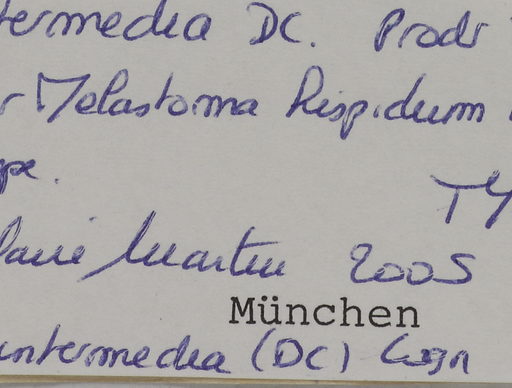 termedia DC. Prodr
r Melastoma hispidum
pe.
TY
Martin 2005
München
intermedia (DC) Cogn